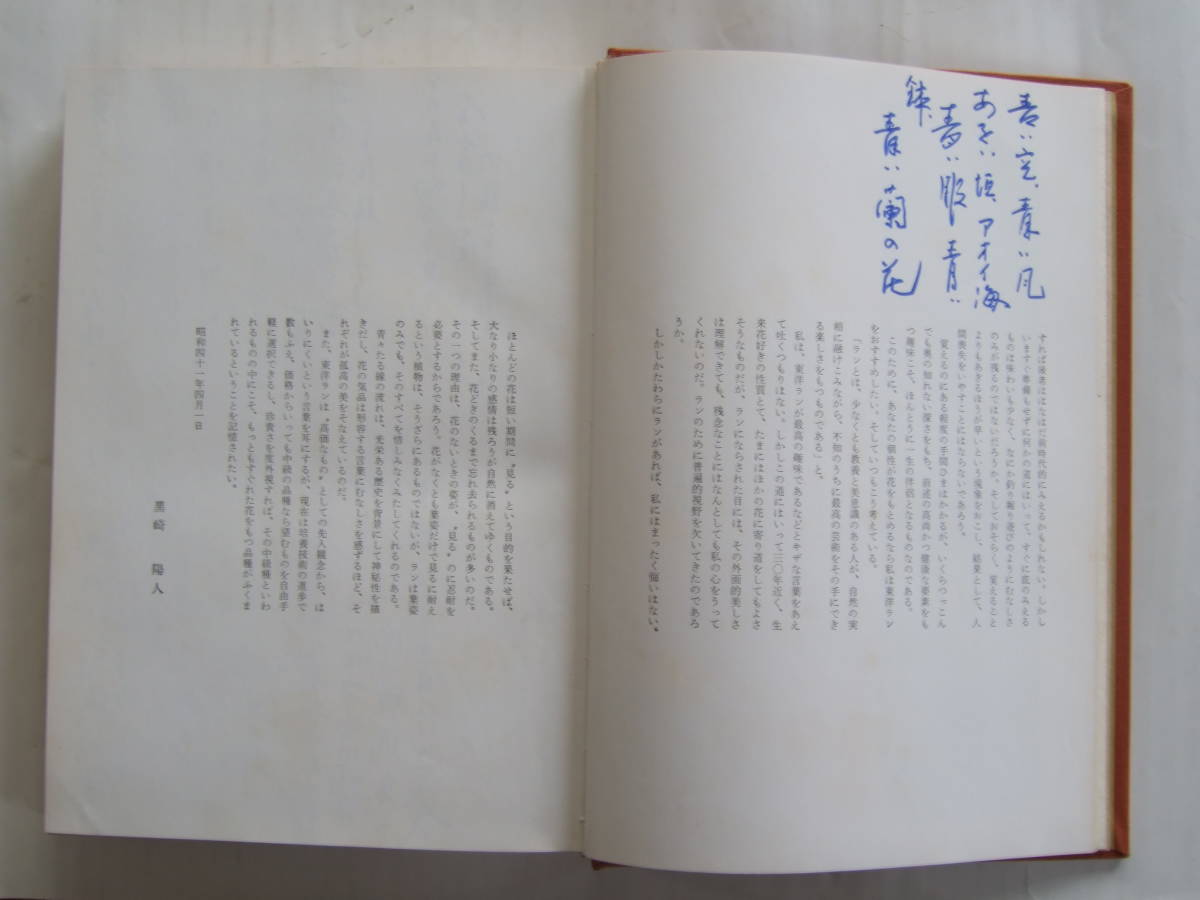 青い空、青い風
あをい垣、アオイ海
青い服 青い
鉢、
青い蘭の花
すれば後者ははなはだ前時代的にみえるかもしれない。しかし
いますぐ準備もせずに何かの道にはいって、すぐに底のみえる
ものは味わいも少なく、なにか釣り堀り遊びのようにむなしさ
のみが残るのではないだろうか。そしておそらく、覚えること
よりもあきるほうが早いという現象をおこし、結果として、人
間喪失をいやすことにはならないであろう。
覚えるのにある程度の手間ひまはかかるが、いくらつっこん
でも奥の知れない深さをもち、前述の高尚かつ健康な要素をも
つ趣味こそ、ほんとうに一生の伴侶となるものなのである。
このために、あなたの個性が花をもとめるなら私は東洋ラン
をおすすめしたい。そしていつもこう考えている。
『ランとは、少なくとも教養と美意識のある人が、自然の実
相に融けこみながら、不知のうちに最高の芸術をその手にでき
る楽しさをもつものである』と。
私は、東洋ランが最高の趣味であるなどとキザな言葉をあえ
て吐くつもりはない。しかしこの道にはいって三〇年近く、生
来花好きの性質とて、たまにはほかの花に寄り道をしてもよさ
そうなものだが、ランにならされた目には、その外面的美しさ
は理解できても、残念なことにはなんとしても私の心をうって
くれないのだ。ランのために普遍的視野を欠いてきたのであろ
うか。
しかしかたわらにランがあれば、私にはまったく悔いはない。
ほとんどの花は短い期間に〝見る〟という目的を果たせば、
大なり小なりの感情は残ろうが自然に消えてゆくものである。
そしてまた、花どきのくるまで忘れ去られるものが多いのだ。
その一つの理由は、花のないときの姿が、〝見る〟のに忍耐を
必要とするからであろう。花がなくとも葉姿だけで見るに耐え
るという植物は、そうざらにあるものではないが、ランは葉姿
のみでも、そのすべてを惜しみなくみたしてくれるのである。
青々たる線の流れは、光栄ある歴史を背景にして神秘性を描
きだし、花の気品は形容する言葉にむなしさを感ずるほど、そ
れぞれが孤高の美をそなえているのだ。
また、東洋ランは〝高価なもの〟としての先入観念から、は
いりにくいという言葉を耳にするが、現在は培養技術の進歩で
数もふえ、価格からいっても中級の品種なら望むものを自由手
軽に選択できるし、珍貴さを度外視すれば、その中級種といわ
れるものの中にこそ、もっともすぐれた花をもつ品種がふくま
れているということを記憶されたい。
昭和四十一年四月一日
黒崎 陽人